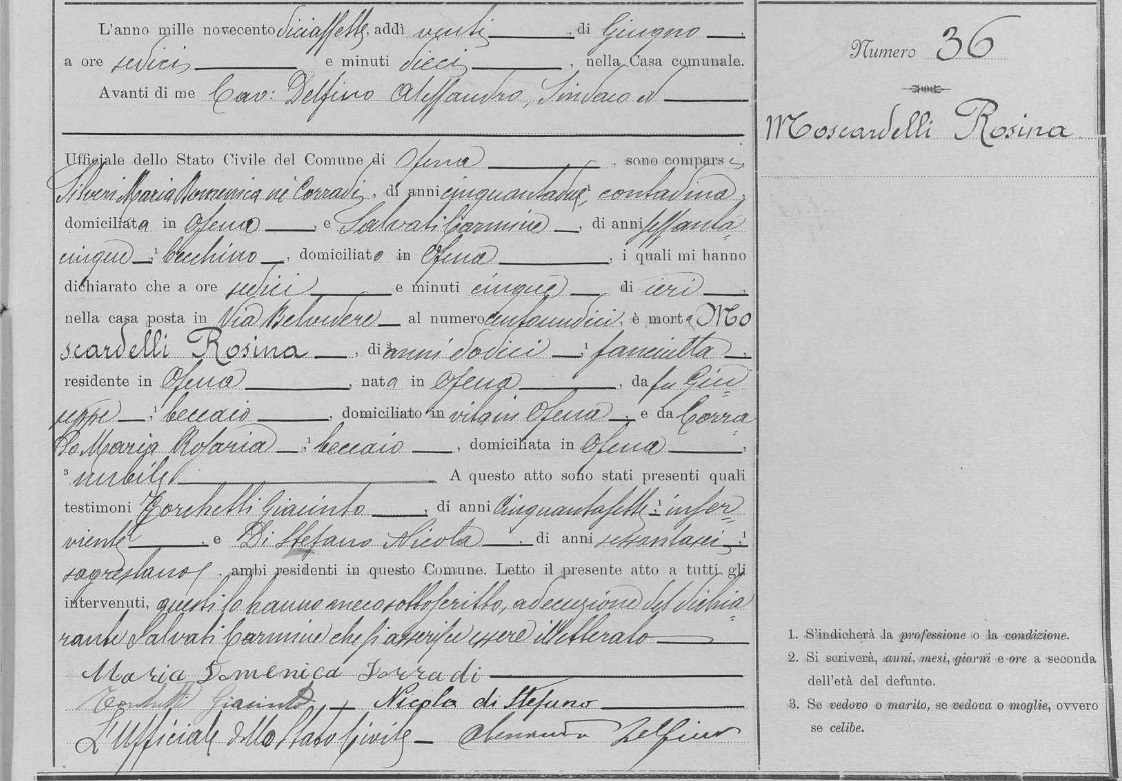 L'anno mille novecento diciassette, addì venti di Giugno
a ore sedici e minuti dieci, nella Casa comunale.
Avanti di me Cav: Delfino Alessandro, Sindaco ed
Ufficiale dello Stato Civile del Comune di Ofena, sono comparsi
Silveri Maria Domenica nei Corradi, di anni cinquantadue,¹ contadina,
domiciliata in Ofena, e Salvati Carmine, di anni sessanta=
cinque,¹ becchino, domiciliato in Ofena, i quali mi hanno
dichiarato che a ore sedici e minuti cinque di ieri,
nella casa posta in Via Belvedere al numero centoundici, è morta Mo
scardelli Rosina, di ²anni dodici,¹ fanciulla,
residente in Ofena, nata in Ofena, da fu Giu
seppe,¹ beccaio, domiciliato in vita in Ofena, e da Corra=
do Maria Rosaria,¹ beccaio, domiciliata in Ofena,
³ nubile A questo atto sono stati presenti quali
testimoni Torchetti Giacinto, di anni cinquantasette,¹ inser=
viente, e Di Stefano Nicola, di anni sessantasei,¹
sagrestano, ambi residenti in questo Comune. Letto il presente atto a tutti gli
intervenuti, questi lo hanno meco sottoscritto, ad eccezione del dichia
rante Salvati Carmine che ha asserito essere illetterato
Maria Domenica
Giacinto Nicola di Stefano
L'Ufficiale dello Stato Civile Delfino
Numero 36
Moscardelli Rosina
1. S'indicherà la professione o la condizione.
2. Si scriverà, anni, mesi, giorni e ore a seconda
dell'età del defunto.
3. Se vedovo o marito, se vedova o moglie, ovvero
se celibe.